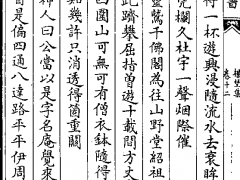 卷十二
待一杯遊興浸隨流水去衰眸
凭欄久杜宇一聲煙際催
靈鷲千佛閣為往山野堂紹祖
此躋攀屈指曾遊十載間方丈
四圍山可無可有僧衣鉢隨得
知幾許只消透得箇重關
婦人曰公當以是字名庵覺來
皆是倫四通八達路平平伊周